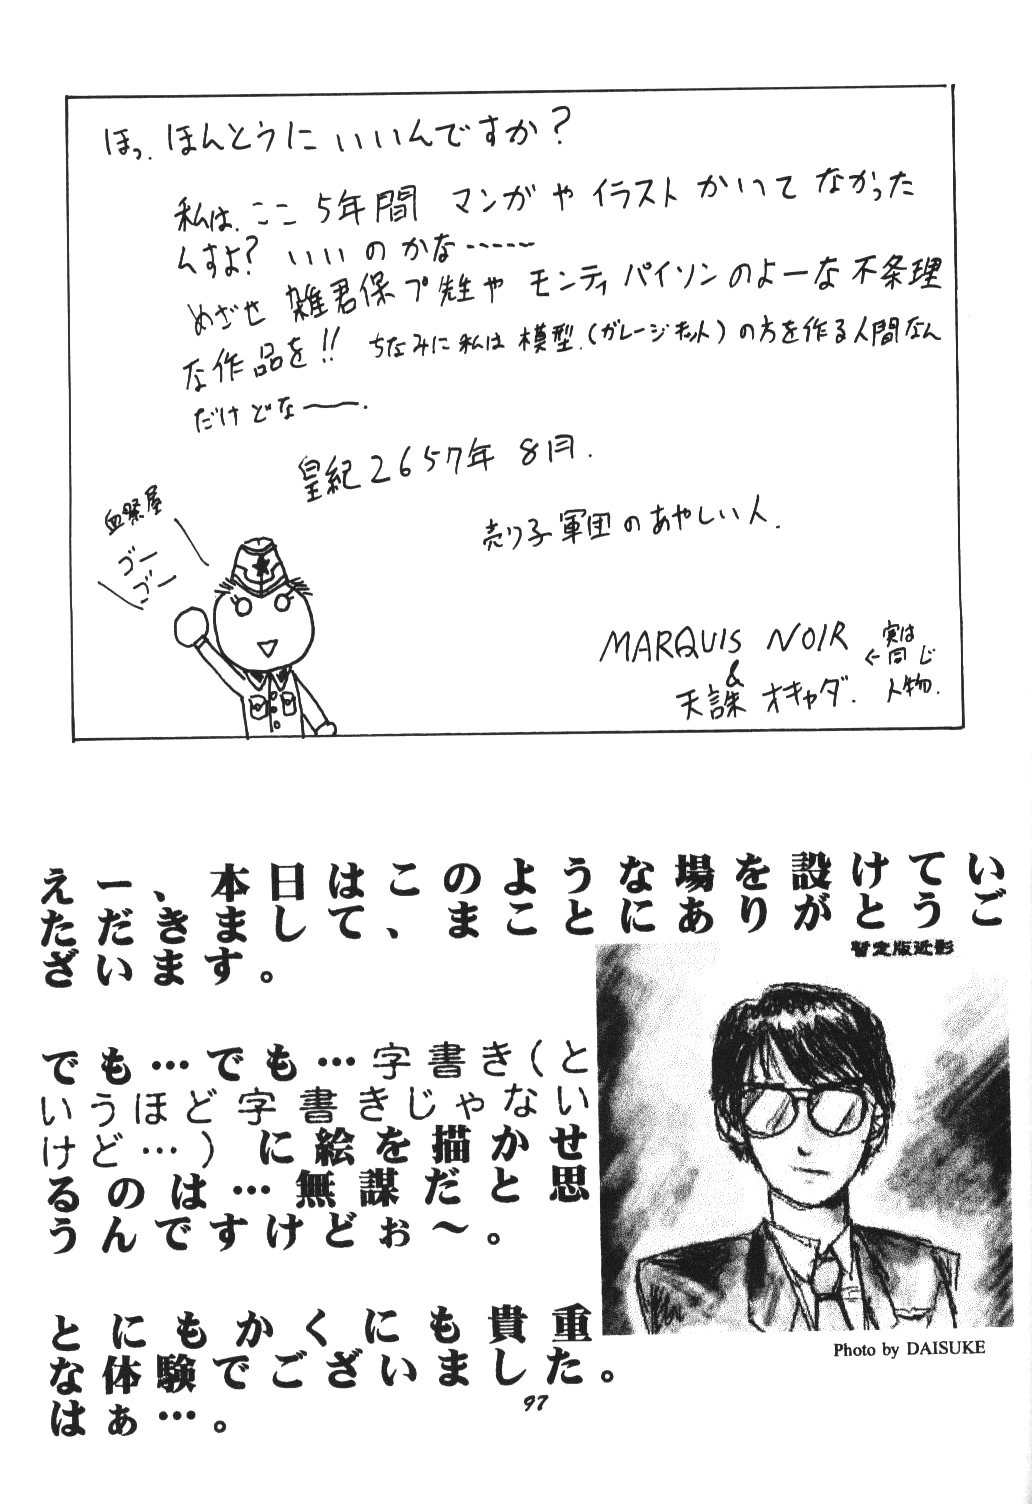 ほっ、ほんとうにいいんですか?
私は、ここ5年間 マンガや イラスト かいて なかった
んすよ? いいのかな……
めざせ 雑君保プ先生や モンティ パイソンのよーな 不条理
な作品を!! ちなみに私は 模型、(ガレージキット)の方を作る人間なん
だけどなー。
皇紀2657年 8月.
売り子軍団のあやしい人.
血祭屋
ゴー
ゴー
MARQUIS NOIR
&
天誅 オキャダ.
実は
←同じ
人物.
えー、本日はこのような場を設けてい
ただきまして、まことにありがとうご
ざいます。
暫定版近影
でも…でも…字書き(と
いうほど字書きじゃない
けど…)に絵を描かせ
るのは…無謀だと思
うんですけどぉ〜。
とにもかくにも貴重
な体験でございました。
はぁ…。
Photo by DAISUKE
97